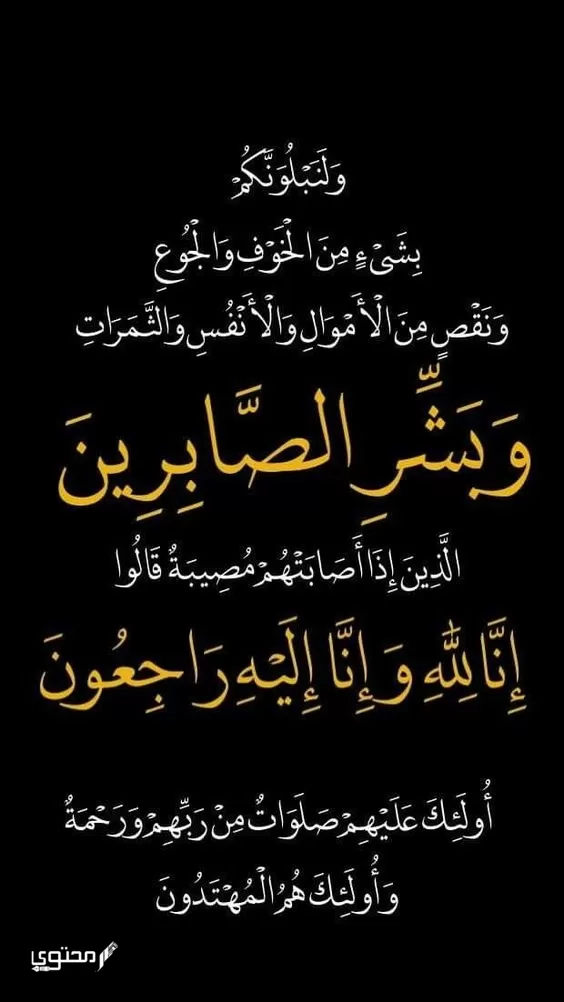 وَلَنَبْلُوَنَّكُمْ
بِشَيْءٍ مِنَ الْخَوْفِ وَالْجُوعِ
وَنَقْصٍ مِنَ الْأَمْوَالِ وَالْأَنْفُسِ وَالثَّمَرَاتِ
وَبَشِّرِ الصَّابِرِينَ
الَّذِينَ إِذَا أَصَابَتْهُمْ مُصِيبَةٌ قَالُوا
إِنَّا لِلَّهِ وَإِنَّا إِلَيْهِ رَاجِعُونَ
أُولَئِكَ عَلَيْهِمْ صَلَوَاتٌ مِنْ رَبِّهِمْ وَرَحْمَةٌ
وَأُولَئِكَ هُمُ الْمُهْتَدُونَ
محتوى